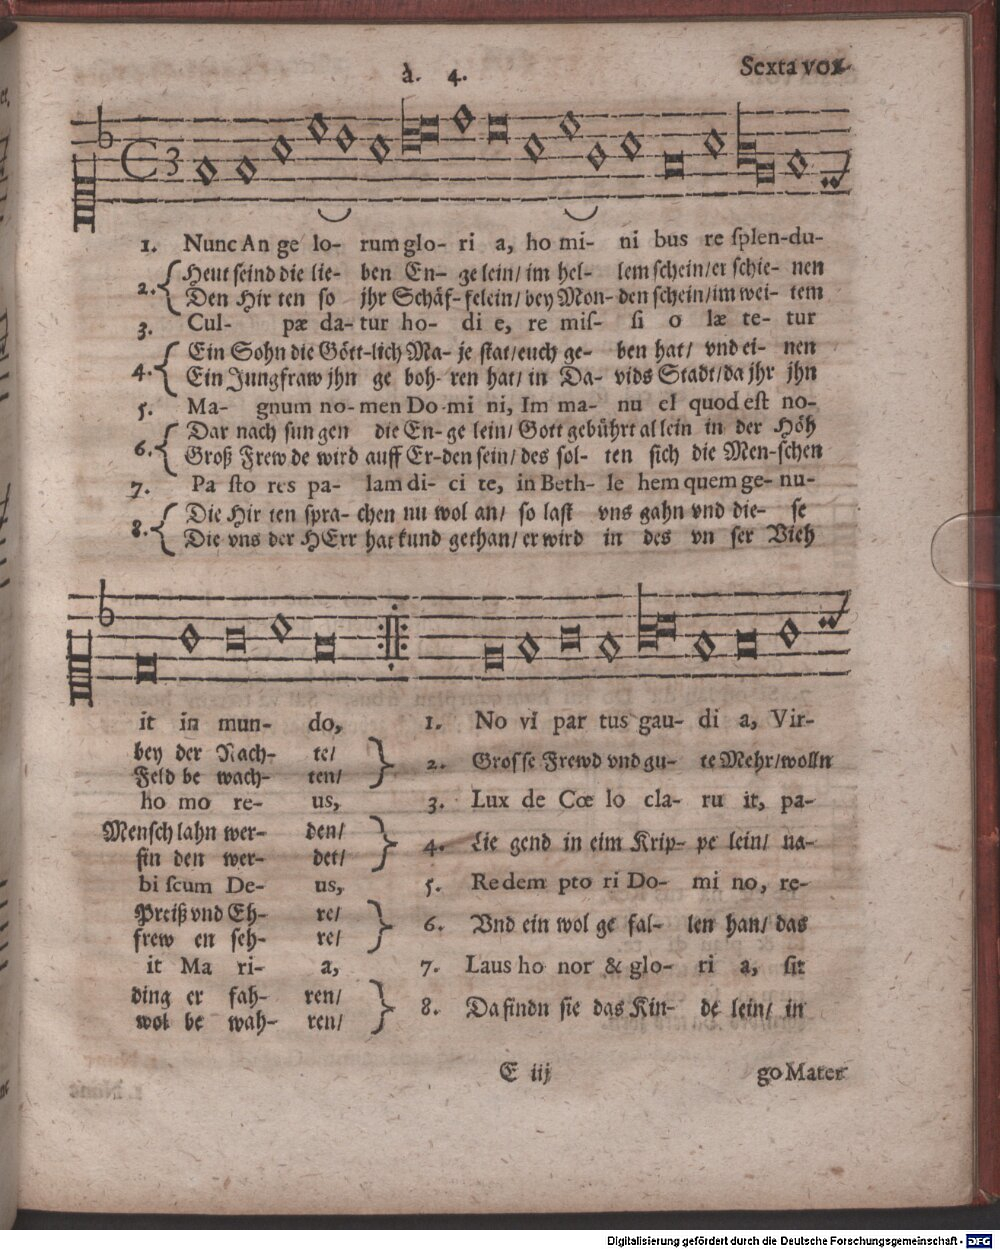 à. 4. Sexta vox
1. Nunc An ge lo- rum glo- ri a, ho mi- ni bus re ſplen-du-
2. Heut ſeind die lie- ben En- ge lein/ im hel- lem ſchein/ er ſchie- nen
Den Hir ten ſo jhr Schäf-felein/ bey Mon- den ſchein/ im wei- tem
3. Cul- pæ da- tur ho- di e, re miſ- ſi o læ te- tur
4. Ein Sohn die Gött-lich Ma- je ſtat/ euch ge- ben hat/ vnd ei- nen
Ein Jungfraw jhn ge boh- ren hat/ in Da- vids Stadt/ da jhr jhn
5. Ma- gnum no- men Do-mi ni, Im ma- nu el quod eſt no-
6. Dar nach ſun gen die En- ge lein/ Gott gebührt al lein in der Höh
Groß Frew de wird auff Er-den ſein/ des ſol- ten ſich die Men-ſchen
7. Pa ſto res pa- lam di- ci te, in Beth- le hem quem ge- nu-
8. Die Hir ten ſpra- chen nu wol an/ ſo laſt vns gahn vnd die- ſe
Die vns der HErr hat kund gethan/ er wird in des vn ſer Vieh
it in mun- do, 1. No vi par tus gau- di a, Vir-
bey der Nach- te/
Feld be wach- ten/ 2. Groſſe Frewd vnd gu- te Mehr/ wolln
ho mo re- us, 3. Lux de Cœ lo cla- ru it, pa-
Menſch lahn wer- den/
fin den wer- det/ 4. Lie gend in eim Krip- pe lein/ na-
bi ſcum De- us, 5. Redem pto ri Do- mi no, re-
Preiß vnd Eh- re/
frew en ſeh- re/ 6. Vnd ein wol ge fal- len han/ das
it Ma ri- a, 7. Laus ho nor & glo- ri a, ſit
ding er fah- ren/
wol be wah- ren/ 8. Da findn ſie das Kin- de lein/ in
E iij go Mater
Digitalisierung gefördert durch die Deutsche Forschungsgemeinschaft - DFG